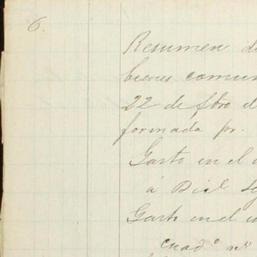 6.
Resumen d
bienes comun
22 de fbro d
formada pr.
Gasto en el
á Dicl
Gasto en el
cuad.º nº